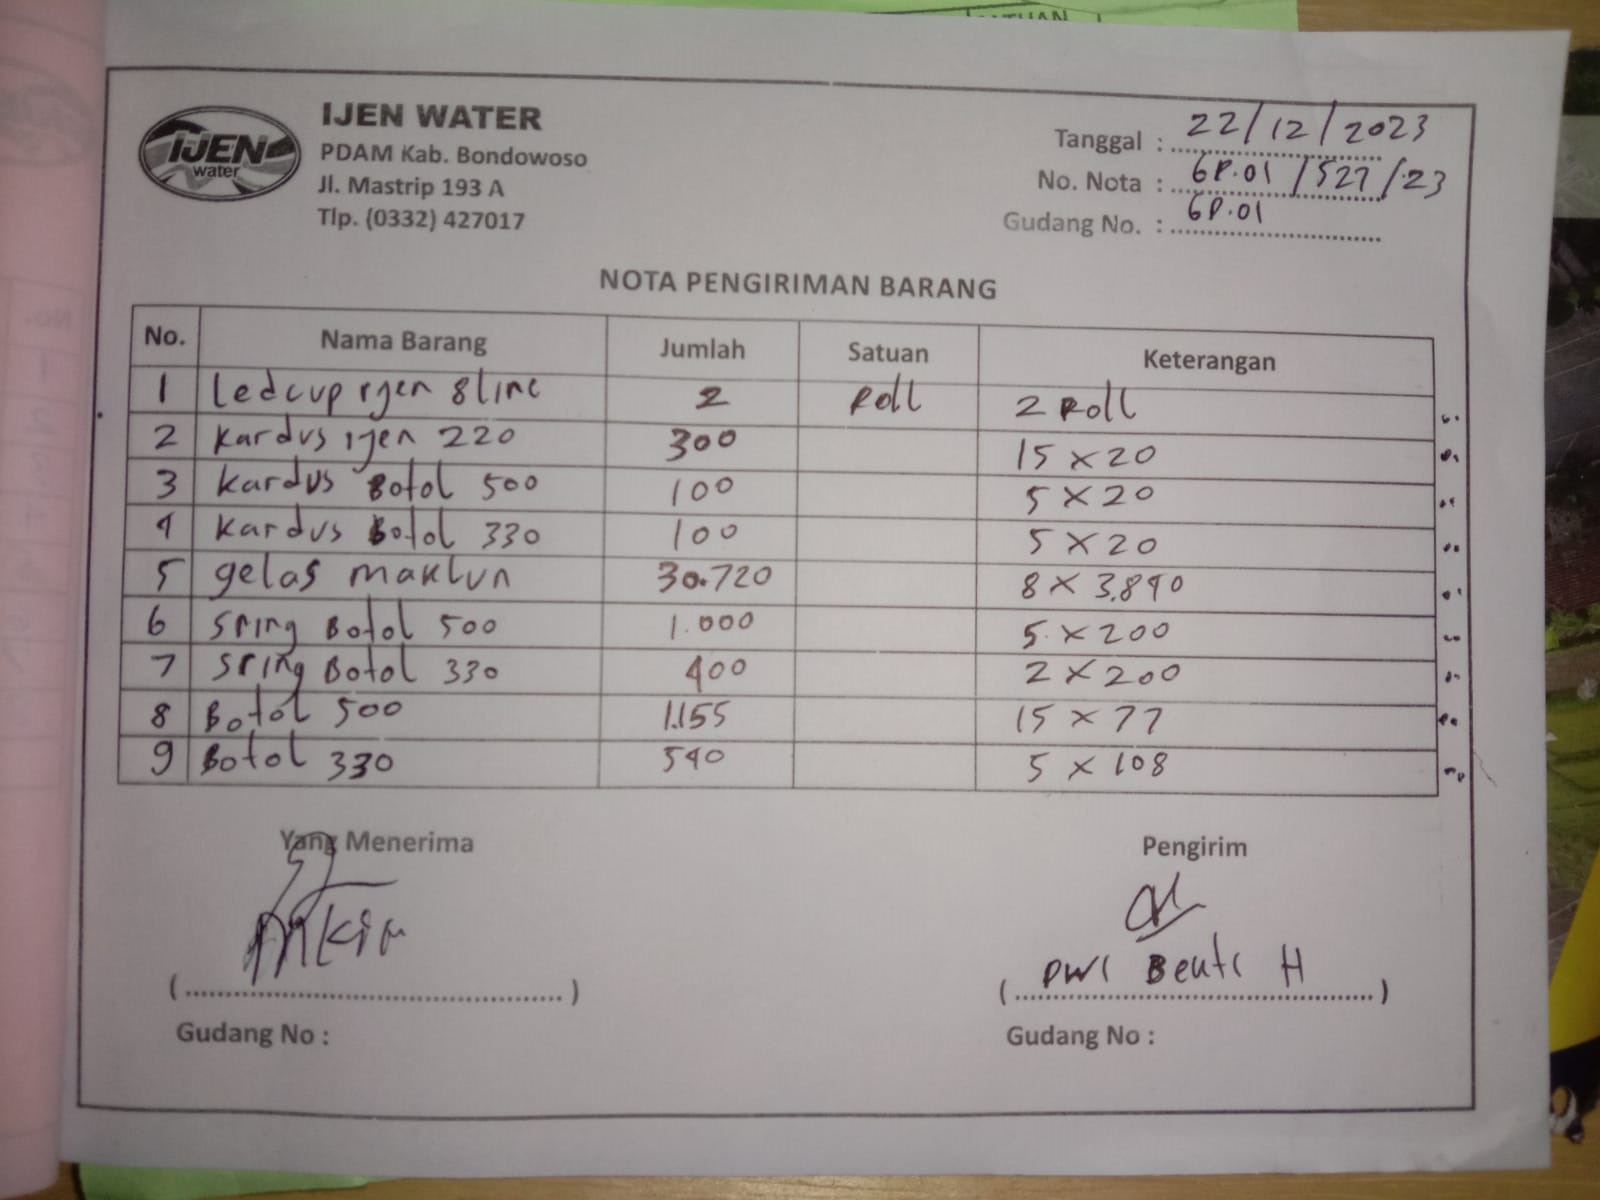 IJEN
water
IJEN WATER
PDAM Kab. Bondowoso
Jl. Mastrip 193 A
Tlp. (0332) 427017
Tanggal : 22/12/2023
No. Nota : GP.01/527/23
Gudang No. : GP.01
NOTA PENGIRIMAN BARANG
No. Nama Barang Jumlah Satuan Keterangan
1 Ledcup ijen 8 line 2 Roll 2 Roll
2 Kardus ijen 220 300 15 x 20
3 Kardus Botol 500 100 5 x 20
4 Kardus Botol 330 100 5 x 20
5 gelas maklun 30.720 8 x 3.840
6 Sring Botol 500 1.000 5 x 200
7 Sring Botol 330 400 2 x 200
8 Botol 500 1.155 15 x 77
9 Botol 330 540 5 x 108
Yang Menerima Pengirim
Dwi H
Gudang No : Gudang No :